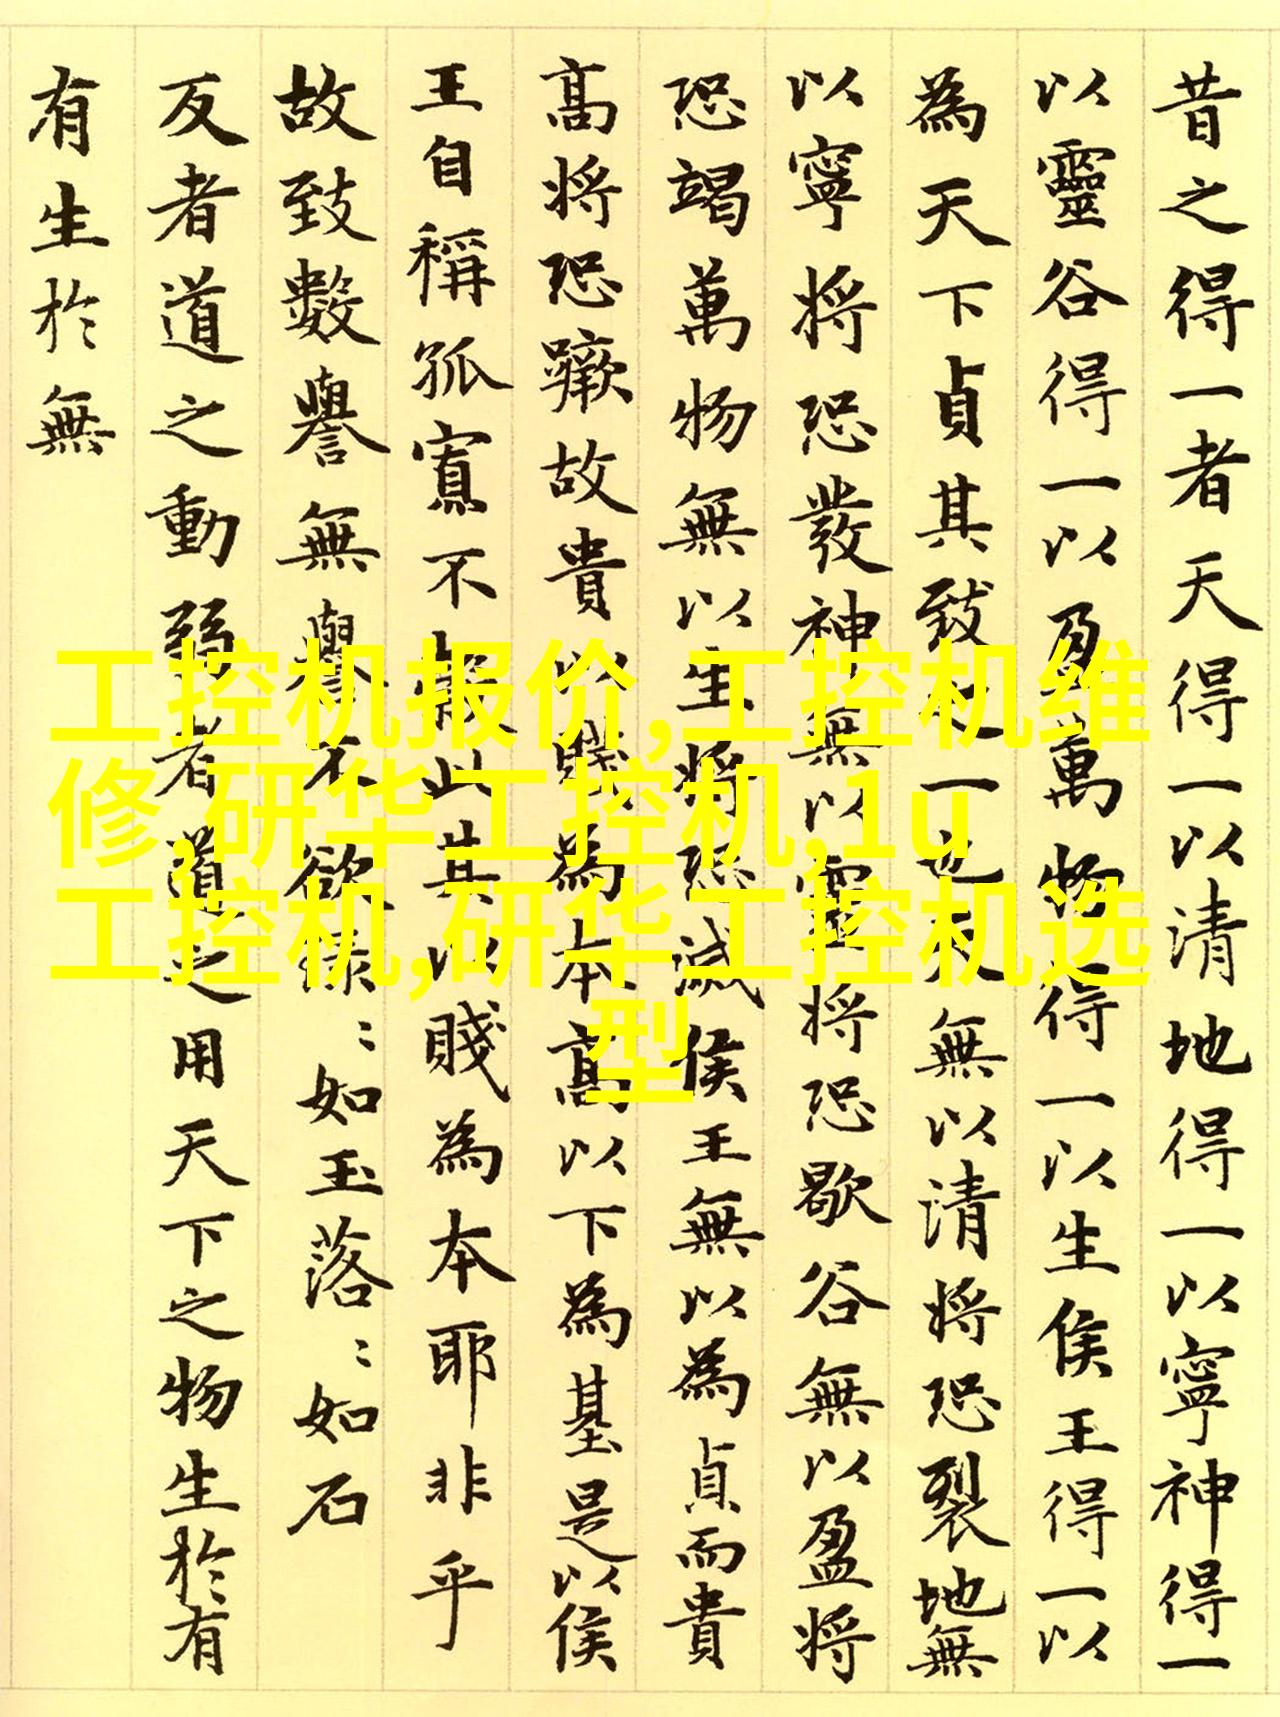 昔之得一者天得一以清地得一以寧神得一
以靈谷得一以盈萬物得一以生侯王得一以
為天下貞其致之一也天無以清将恐裂地無
以寧将恐發神無以靈将恐歇谷無以盈将
恐竭萬物無以生将恐滅侯王無以為貞而貴
髙将恐蹶故貴以賤為本髙以下為基是以侯
王自稱孤寡不穀此其以賤為本耶非乎
故致數譽無譽不欲琭〻如玉落〻如石
反者道之動弱者道之用天下之物生於有
有生於無
工控机报价,工控机维
修,研华工控机,1u
工控机,研华工控机选
型